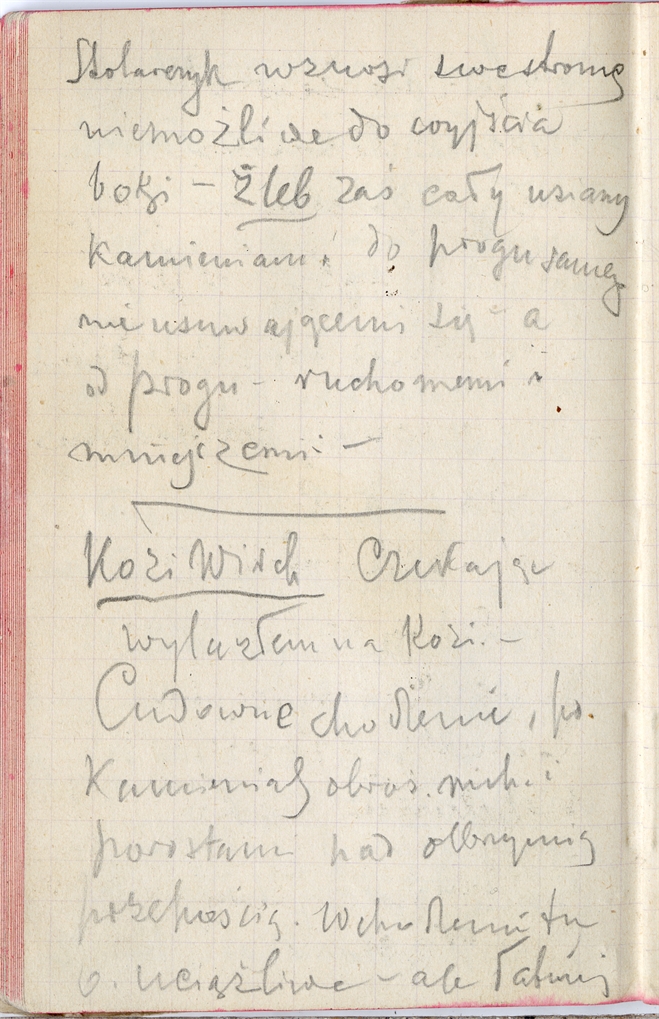 Stolarczyk wznosi swe stromę
niemożliwe do wyjścia
boki – żleb zaś cały usiany
kamieniami do progu samego
nieusuwającemi się – a
od progu – ruchomemi i
mniejszemi –
Kozi Wirch Czekając
wylazłem na Kozi. –
Cudowne chodzenie, po
kamieniach obroś. mch. i
porostami nad olbrzymią
przepaścią. Wchodzenie tu
b. uciążliwe – ale łatwiej